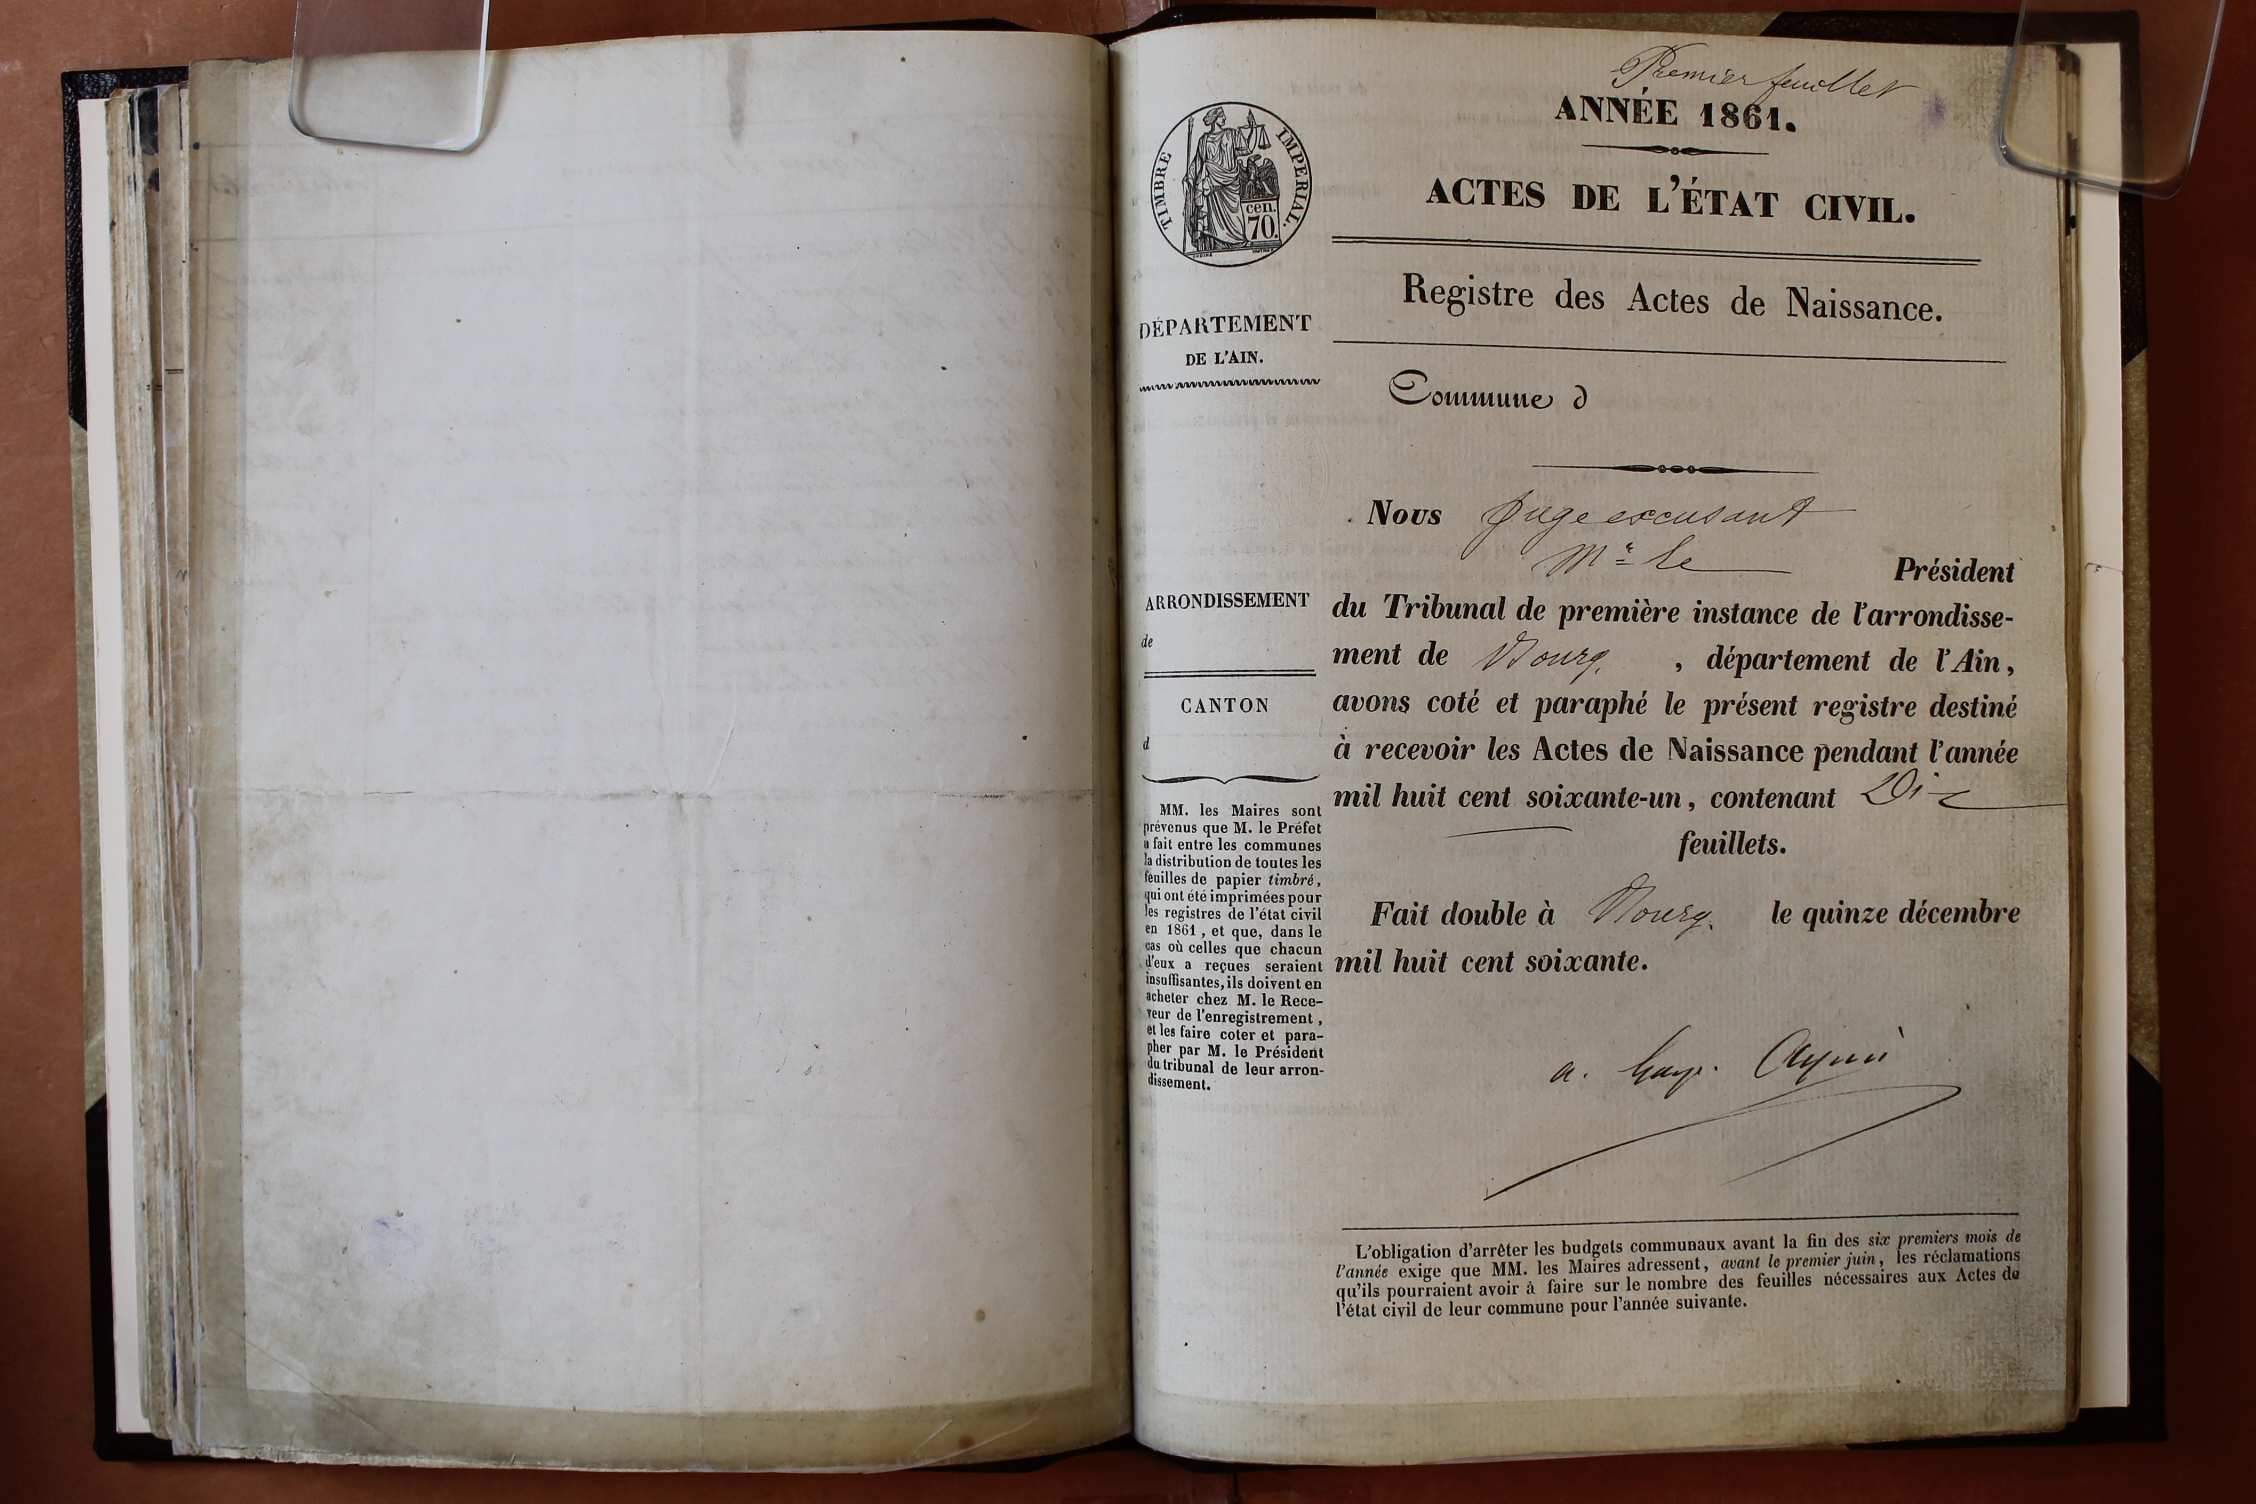 Premier feuillet
ANNÉE 1861.
TIMBRE IMPERIAL.
cen.
70.
ACTES DE L'ÉTAT CIVIL.
Registre des Actes de Naissance.
DÉPARTEMENT
DE L'AIN.
Commune d
Nous Juge excusant
Mr le Président
ARRONDISSEMENT
de
CANTON
d
du Tribunal de première instance de l'arrondisse-
ment de Bourg, , département de l'Ain,
avons coté et paraphé le présent registre destiné
à recevoir les Actes de Naissance pendant l'année
mil huit cent soixante-un, contenant Dix
feuillets.
Fait double à Bourg, le quinze décembre
mil huit cent soixante.
MM. les Maires sont
prévenus que M. le Préfet
a fait entre les communes
la distribution de toutes les
feuilles de papier timbré,
qui ont été imprimées pour
les registres de l'état civil
en 1861, et que, dans le
cas où celles que chacun
d'eux a reçues seraient
insuffisantes, ils doivent en
acheter chez M. le Rece-
veur de l'enregistrement,
et les faire coter et para-
pher par M. le Président
du tribunal de leur arron-
dissement.
L'obligation d'arrêter les budgets communaux avant la fin des six premiers mois de
l'année exige que MM. les Maires adressent, avant le premier juin, les réclamations
qu'ils pourraient avoir à faire sur le nombre des feuilles nécessaires aux Actes de
l'état civil de leur commune pour l'année suivante.